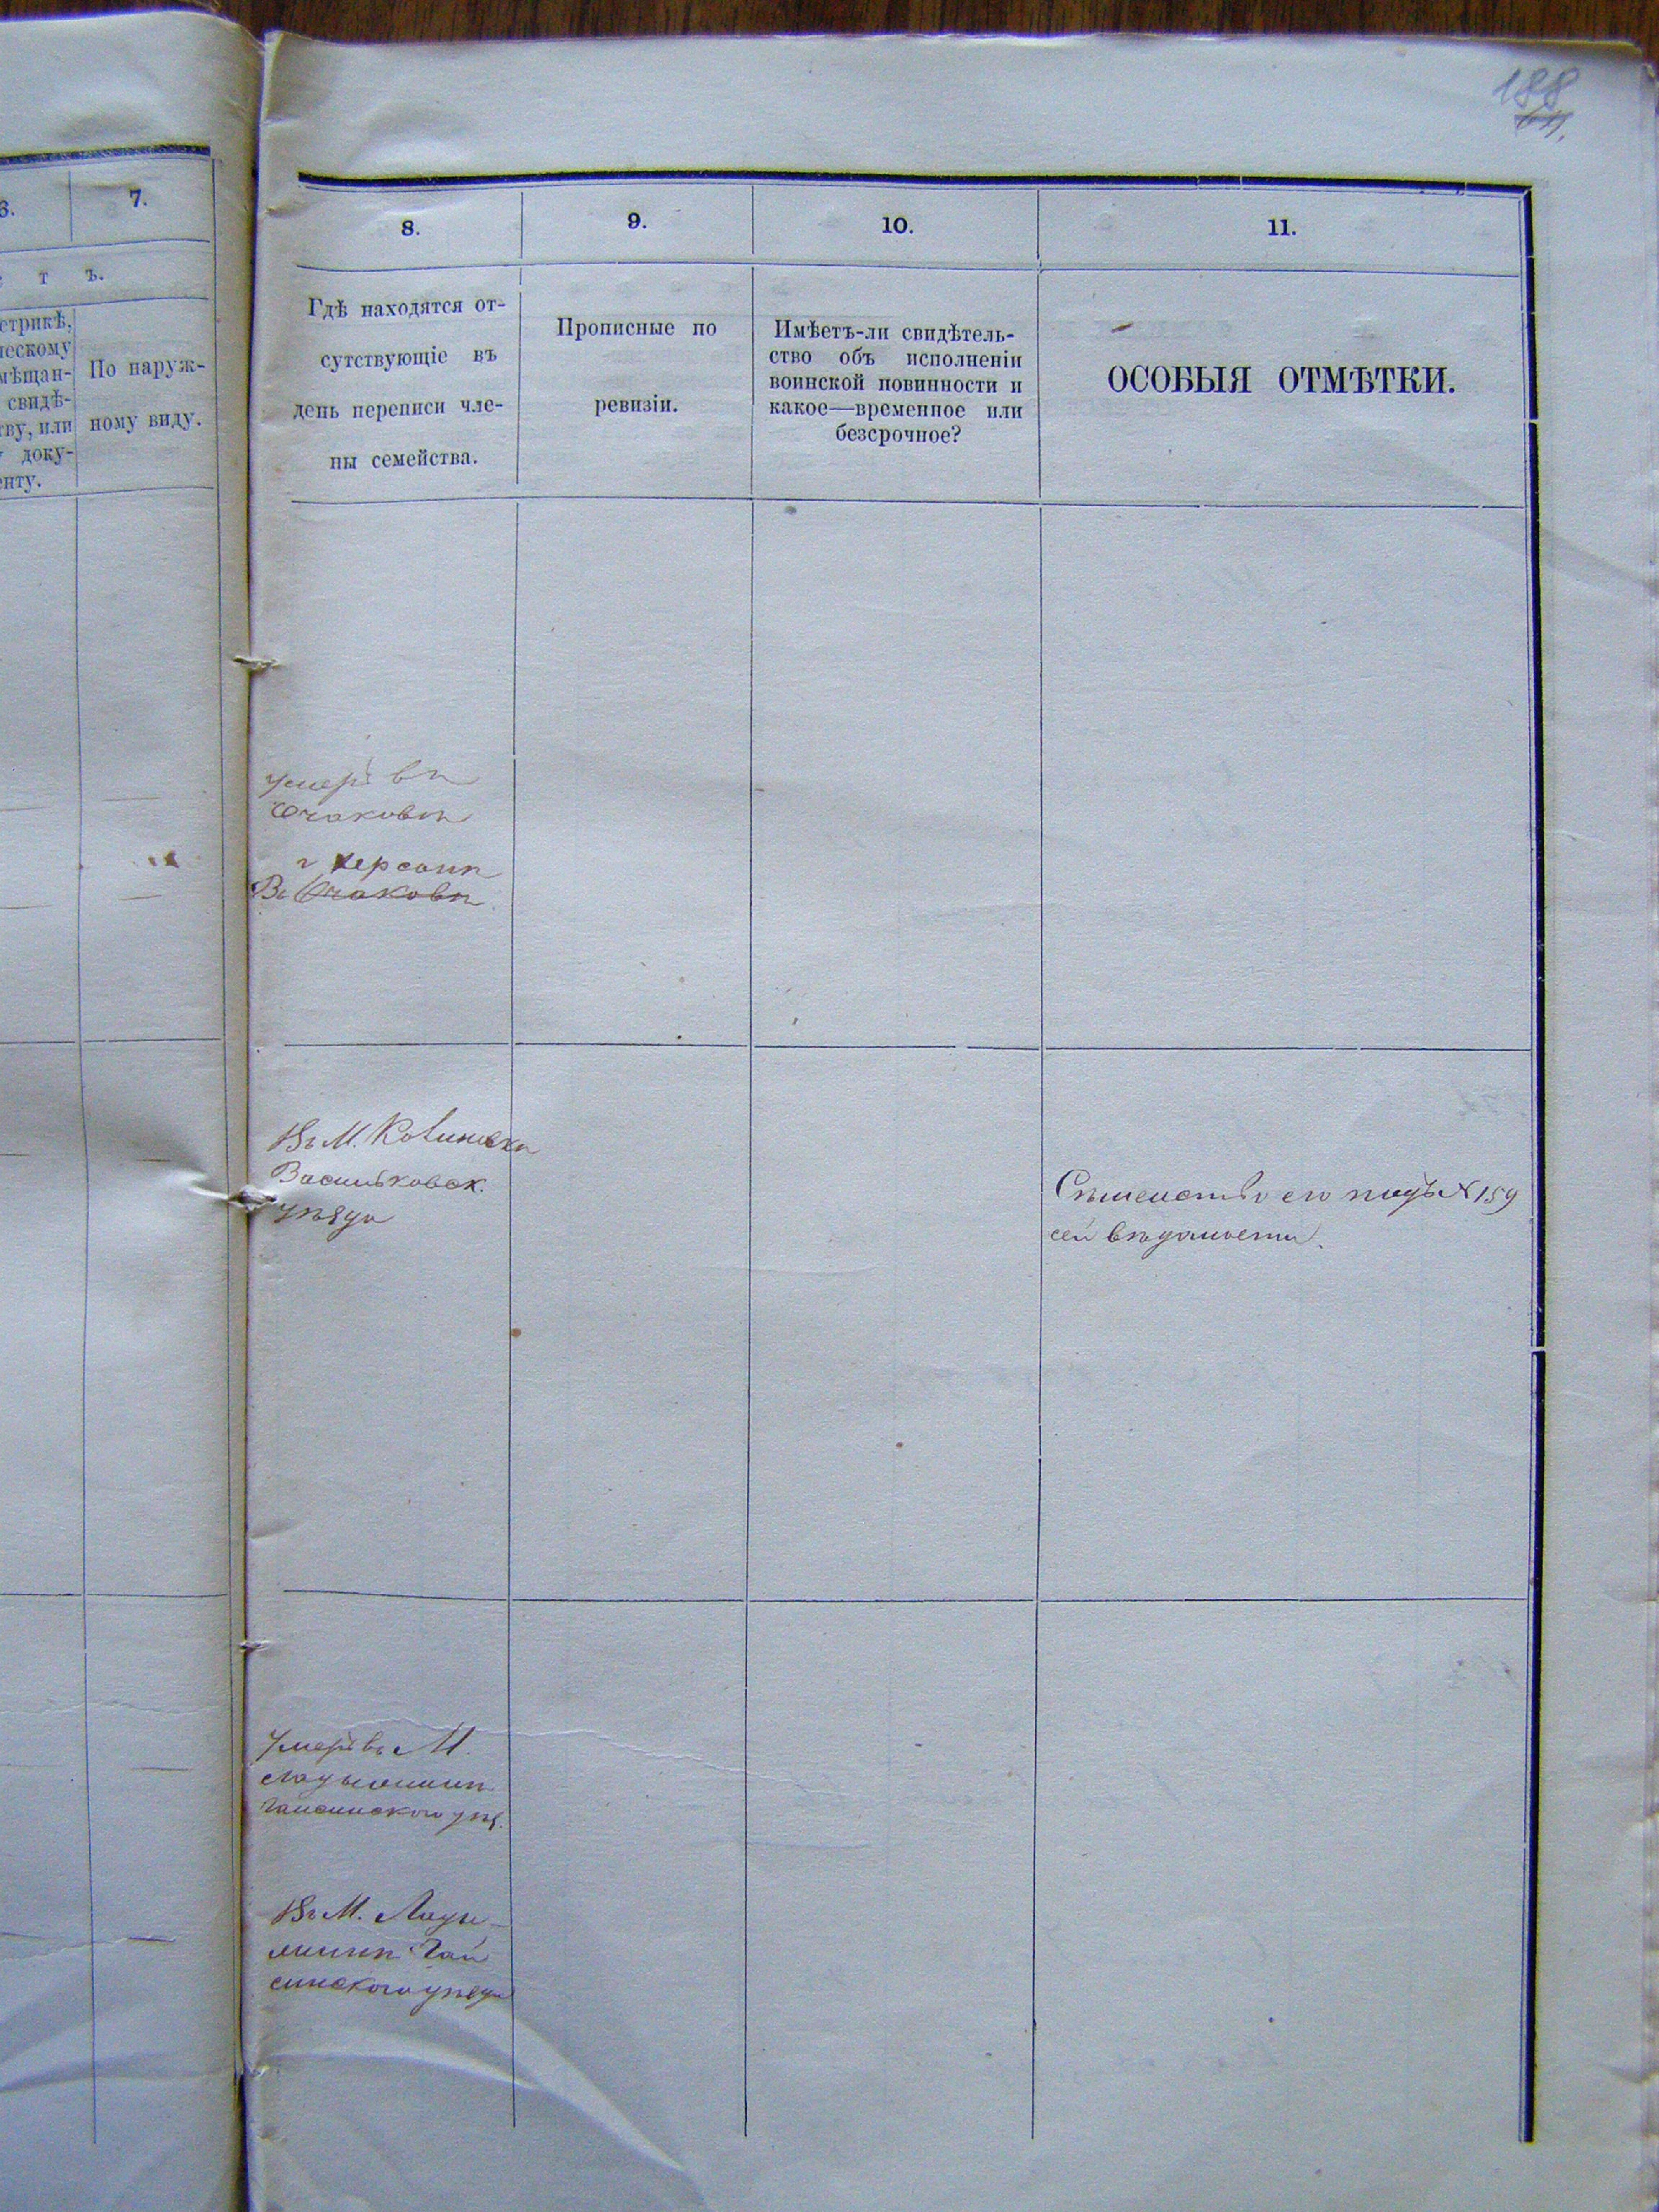 188
6.
7.
8.
9.
10.
11.
т ъ.
По наруж-
ному виду.
Гдѣ находятся от-
сутствующіе въ
день переписи чле-
ны семейства.
Прописные по
ревизіи.
Имѣетъ-ли свидѣтель-
ство объ исполненіи
воинской повинности и
какое—временное или
безсрочное?
ОСОБЫЯ ОТМѢТКИ.
свидѣ-
доку-
Умеръ въ
Очаковѣ
г Херсонѣ
Въ Очаковѣ
Въ М.
Васильковск.
уѣзда
его подъ № 159
сей вѣдомости.
Умеръ въ М.
Ладыжинѣ
Гайсинского уѣз.
Въ М. Лады-
жинѣ Гай
синского уѣзда